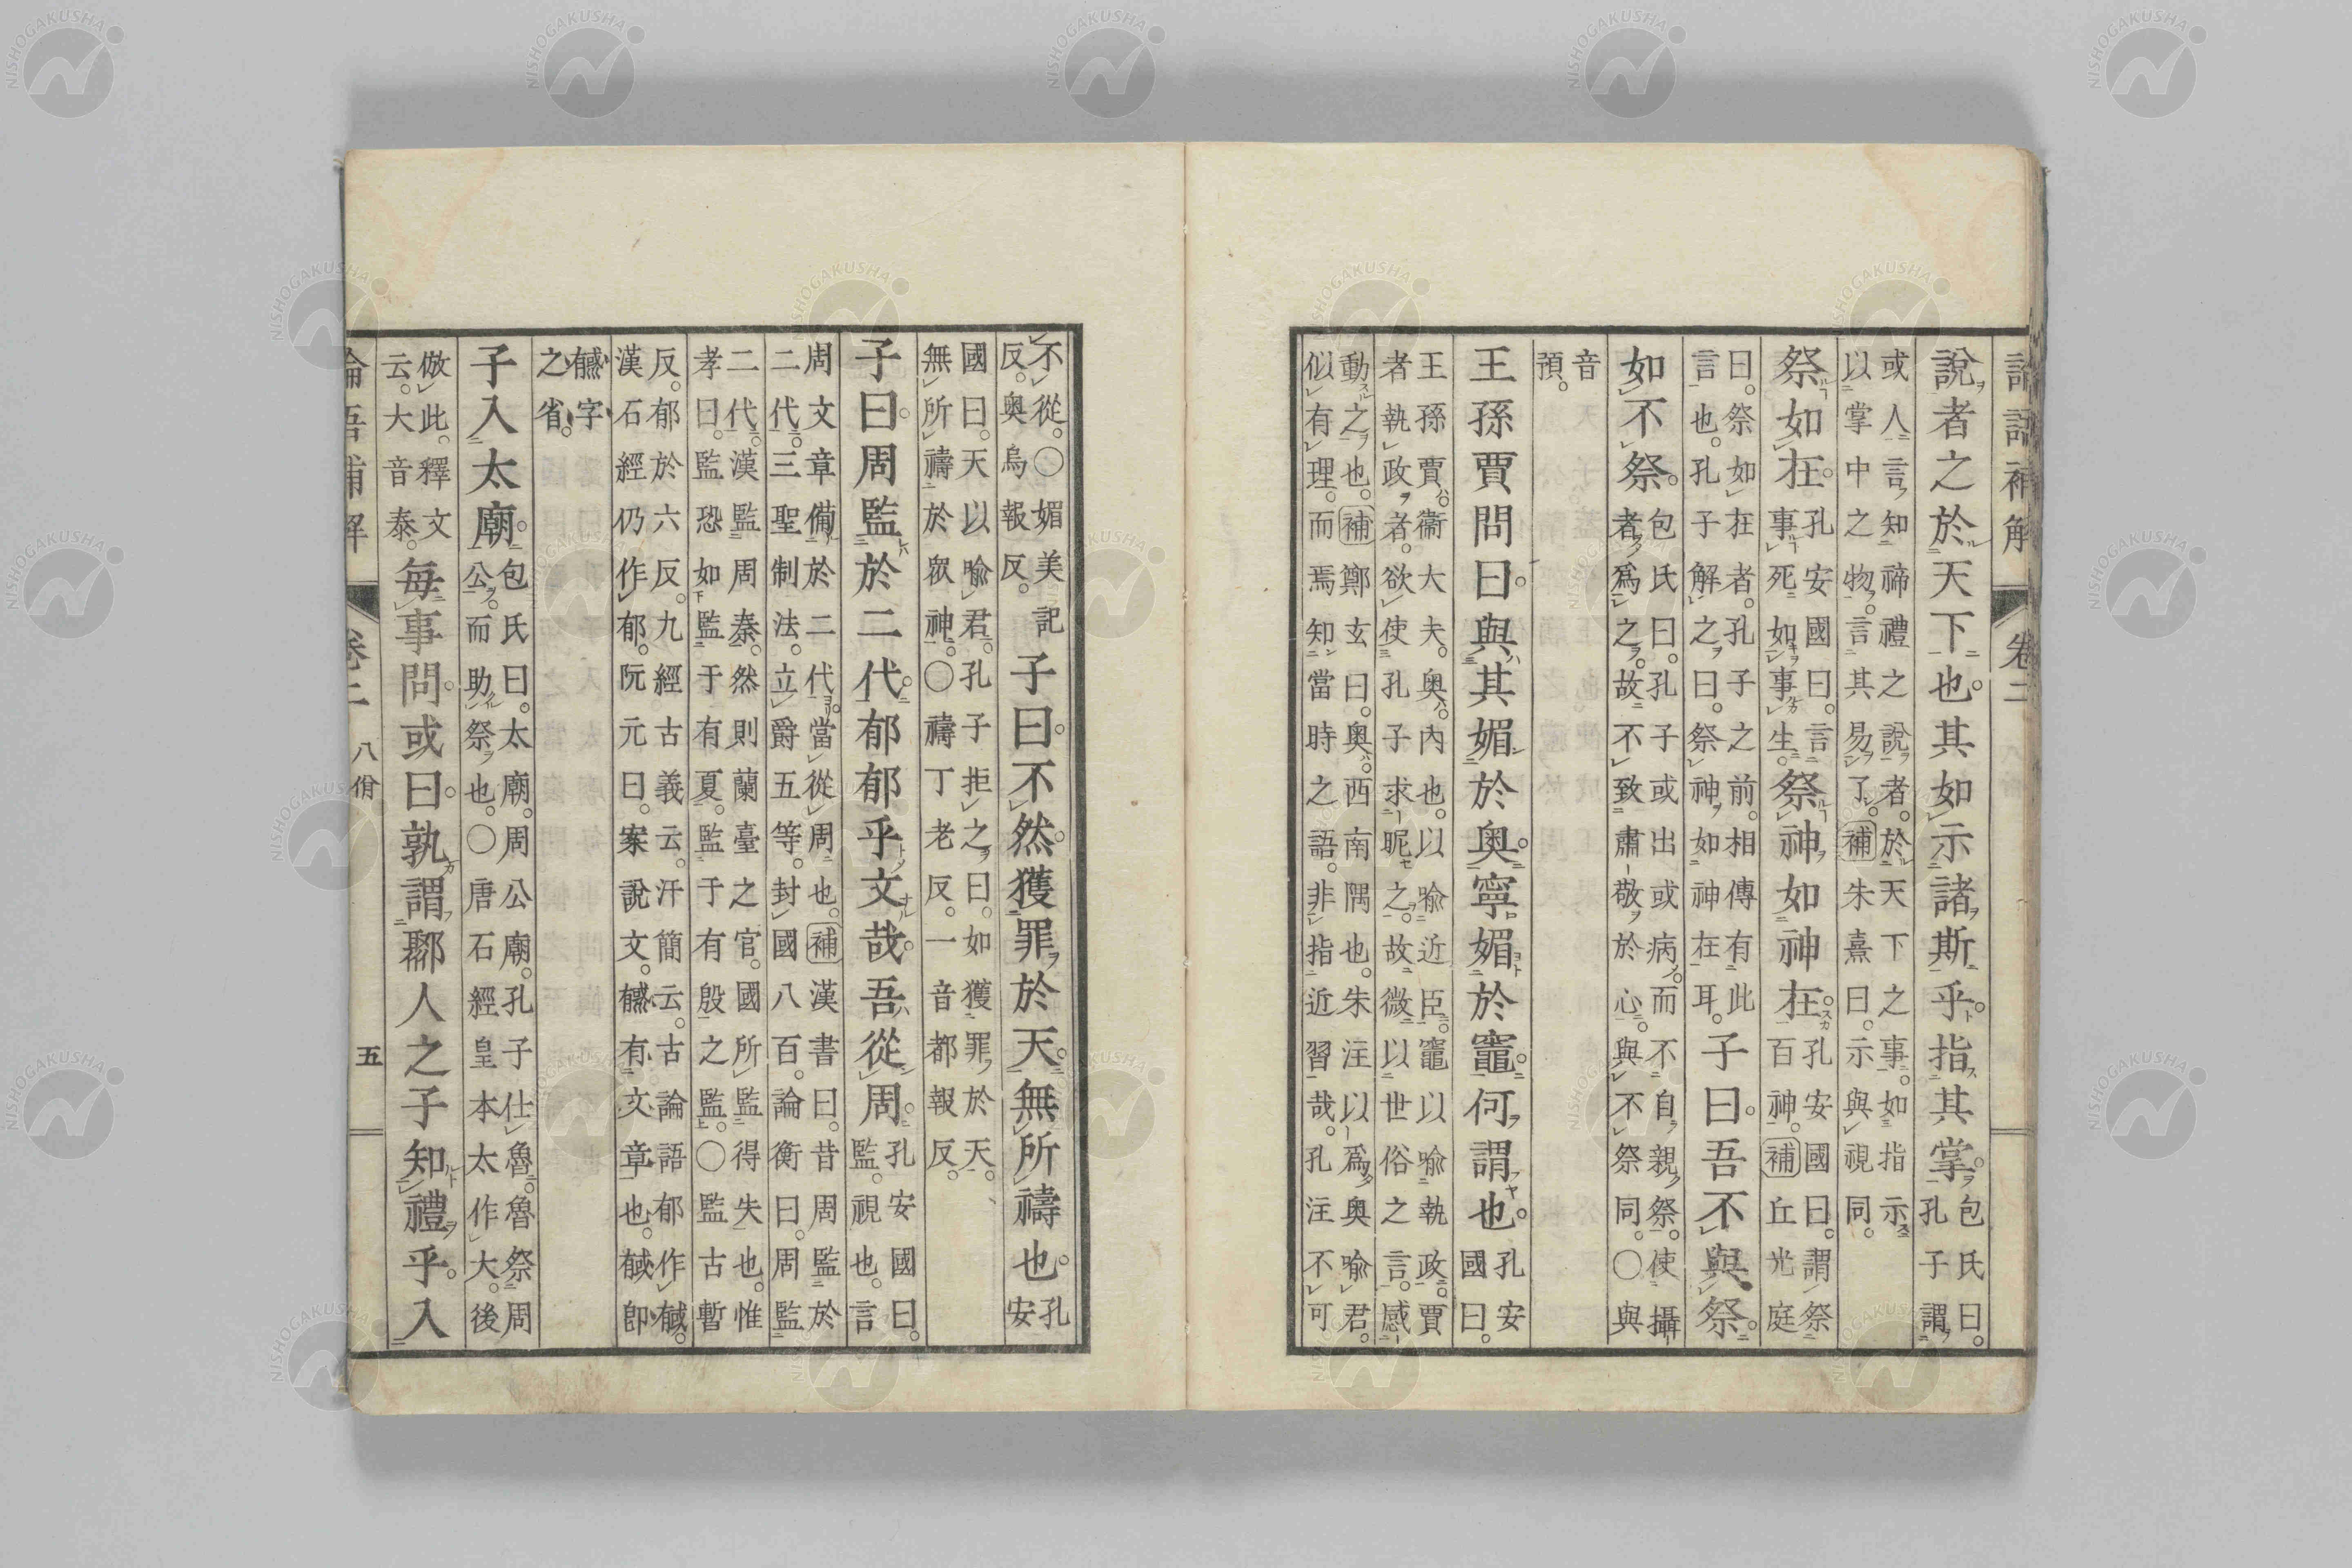 說者之於天下也其如示諸斯乎指其掌包氏曰孔子謂
或人言知禘禮之說者於天下之事如指示
以掌中之物言其易了補朱熹曰示與視同
祭如在孔安國曰言事死如事生祭神如神在孔安國曰謂祭百神補丘光庭
曰祭如在者孔子之前相傳有此
言也孔子解之曰祭神如神在耳子曰吾不與祭
如不祭包氏曰孔子或出或病而不自親祭使攝者爲之故不致肅敬於心與不祭同○與
音預
王孫賈問曰與其媚於奧寧媚於竈何謂也孔安國曰
王孫賈衞大夫奧內也以喻近臣竈以喻執政賈
者執政者欲使孔子求昵之故微以世俗之言感
動之也補鄭玄曰奧西南隅也朱注以爲奧喻君
似有理而焉知當時之語非指近習哉孔注不可
不從○媚美記
反奧烏報反子曰不然獲罪於天無所禱也孔安
國曰天以喻君孔子拒之曰如獲罪於天
無所禱於衆神○禱丁老反一音都報反
子曰周監於二代郁郁乎文哉吾從周孔安國曰監視也言
周文章備於二代當從周也補漢書曰昔周監於
二代三聖制法立爵五等封國八百論衡曰周監
二代漢監周秦然則蘭臺之官國所監得失也惟
孝曰監恐如監于有夏監于有殷之監○監古暫
反郁於六反九經古義云汗簡云古論語郁作䤋
漢石經仍作郁阮元曰案說文有文章也卽
字
之省
子入太廟包氏曰太廟周公廟孔子仕魯魯祭周公而助祭也○唐石經皇本太作大後
倣此釋文
云大音泰每事問或曰孰謂鄹人之子知禮乎入
論語補解
卷二
八佾
五